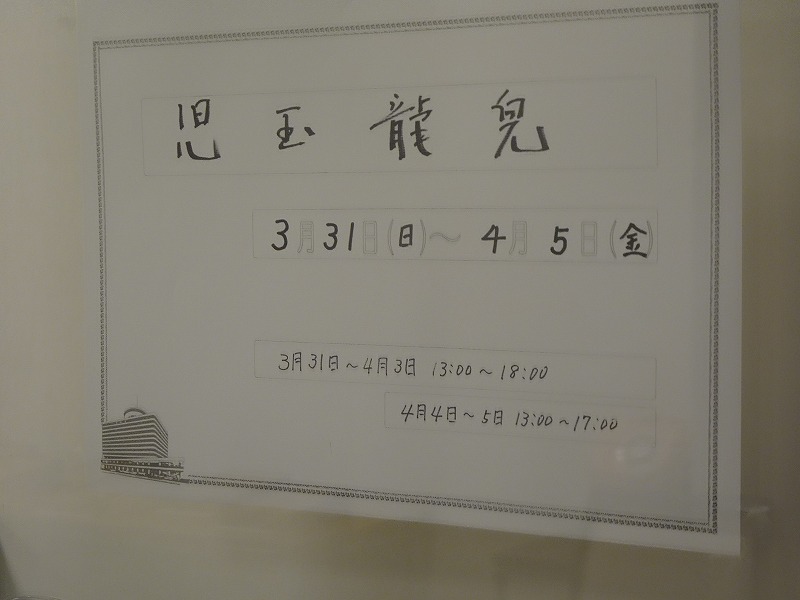 児玉龍兒
3月31日(日)〜4月5日(金)
3月31日〜4月3日 13:00〜18:00
4月4日〜5日 13:00〜17:00